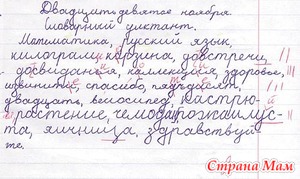 Двадцать девятое ноября.
Словарный диктант.
Математика, русский язык,
килограмм, карзина, довстречи,
досвидания, коллекция, здоровье,
извинити, спасибо, пятьдесят,
двадцать, велосипед, кастрю-
растение, чемодан, пожалуйс-
та, яичница, здравствуй
те.
Страна Мам